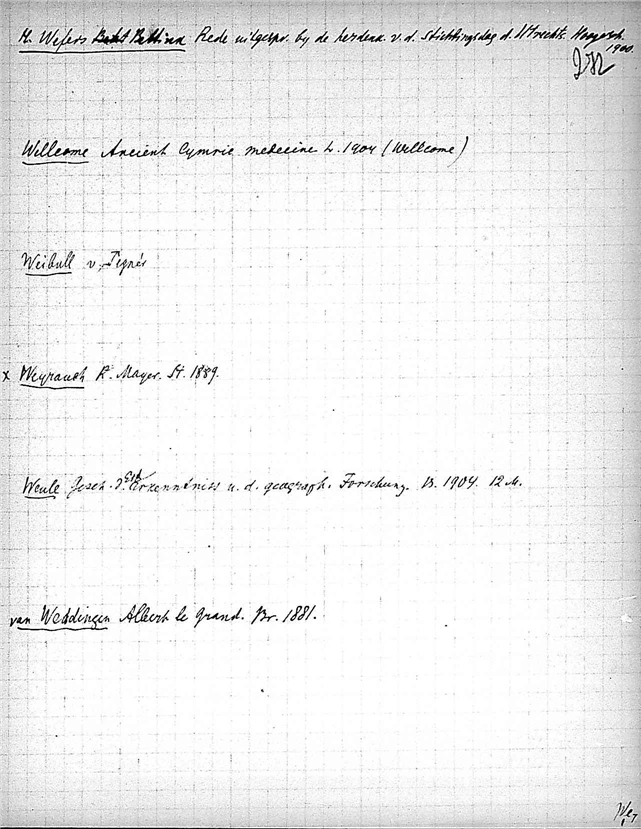 M. Wefers Bettink Rede uitgespr. by de herdenk. v. d. Stichtingsdag d. Utrecht. Hoogesch. 1900.
Wellcome Ancient Cymric medecine L. 1904 (Wellcome)
Weibull v. Tegnér
x Weyrauch R. Mayer. St. 1889.
Weule Gesch. d. Erd Erkenntniss u. d. geograph. Forschung. B. 1904. 12 M.
van Weddingen Albert le Grand. Br. 1881.